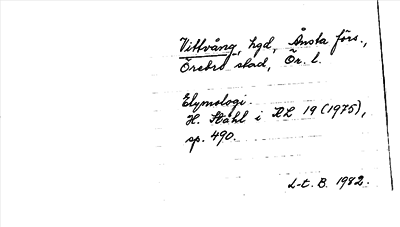 Vittvång, hgd, Ånsta förs.,
Örebro stad, Ör. l.
Etymologi.
H. Ståhl i RL 19 (1975),
sp. 490.
L-t. B. 1982.